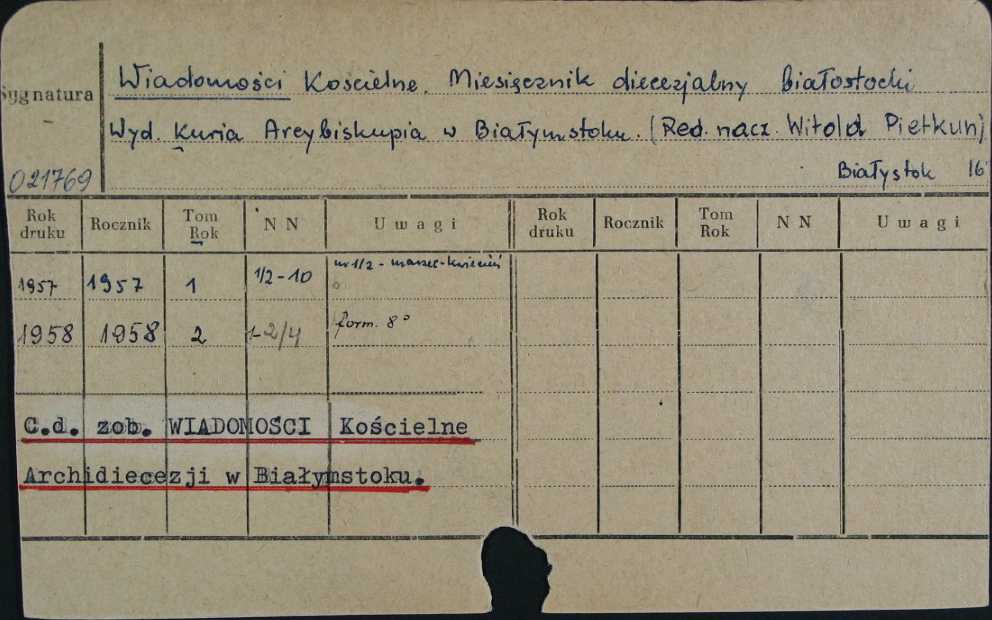 Wiadomości Kościelne. Miesięcznik diecezjalny Białostocki
Sygnatura
Wyd. Kuria Arcybiskupia w Białymstoku. (Red. nacz. Witold Pietkun)
021769
Białystok 16
Rok druku Rocznik Tom Rok N N Uwagi Rok druku Rocznik Tom Rok N N Uwagi
1957 1957 1 1/2-10 nr 1/2 - marzec-kwiecień
1958 1958 2 1-2/4 form. 8°
C.d. zob. WIADOMOŚCI Kościelne
Archidiecezji w Białymstoku.